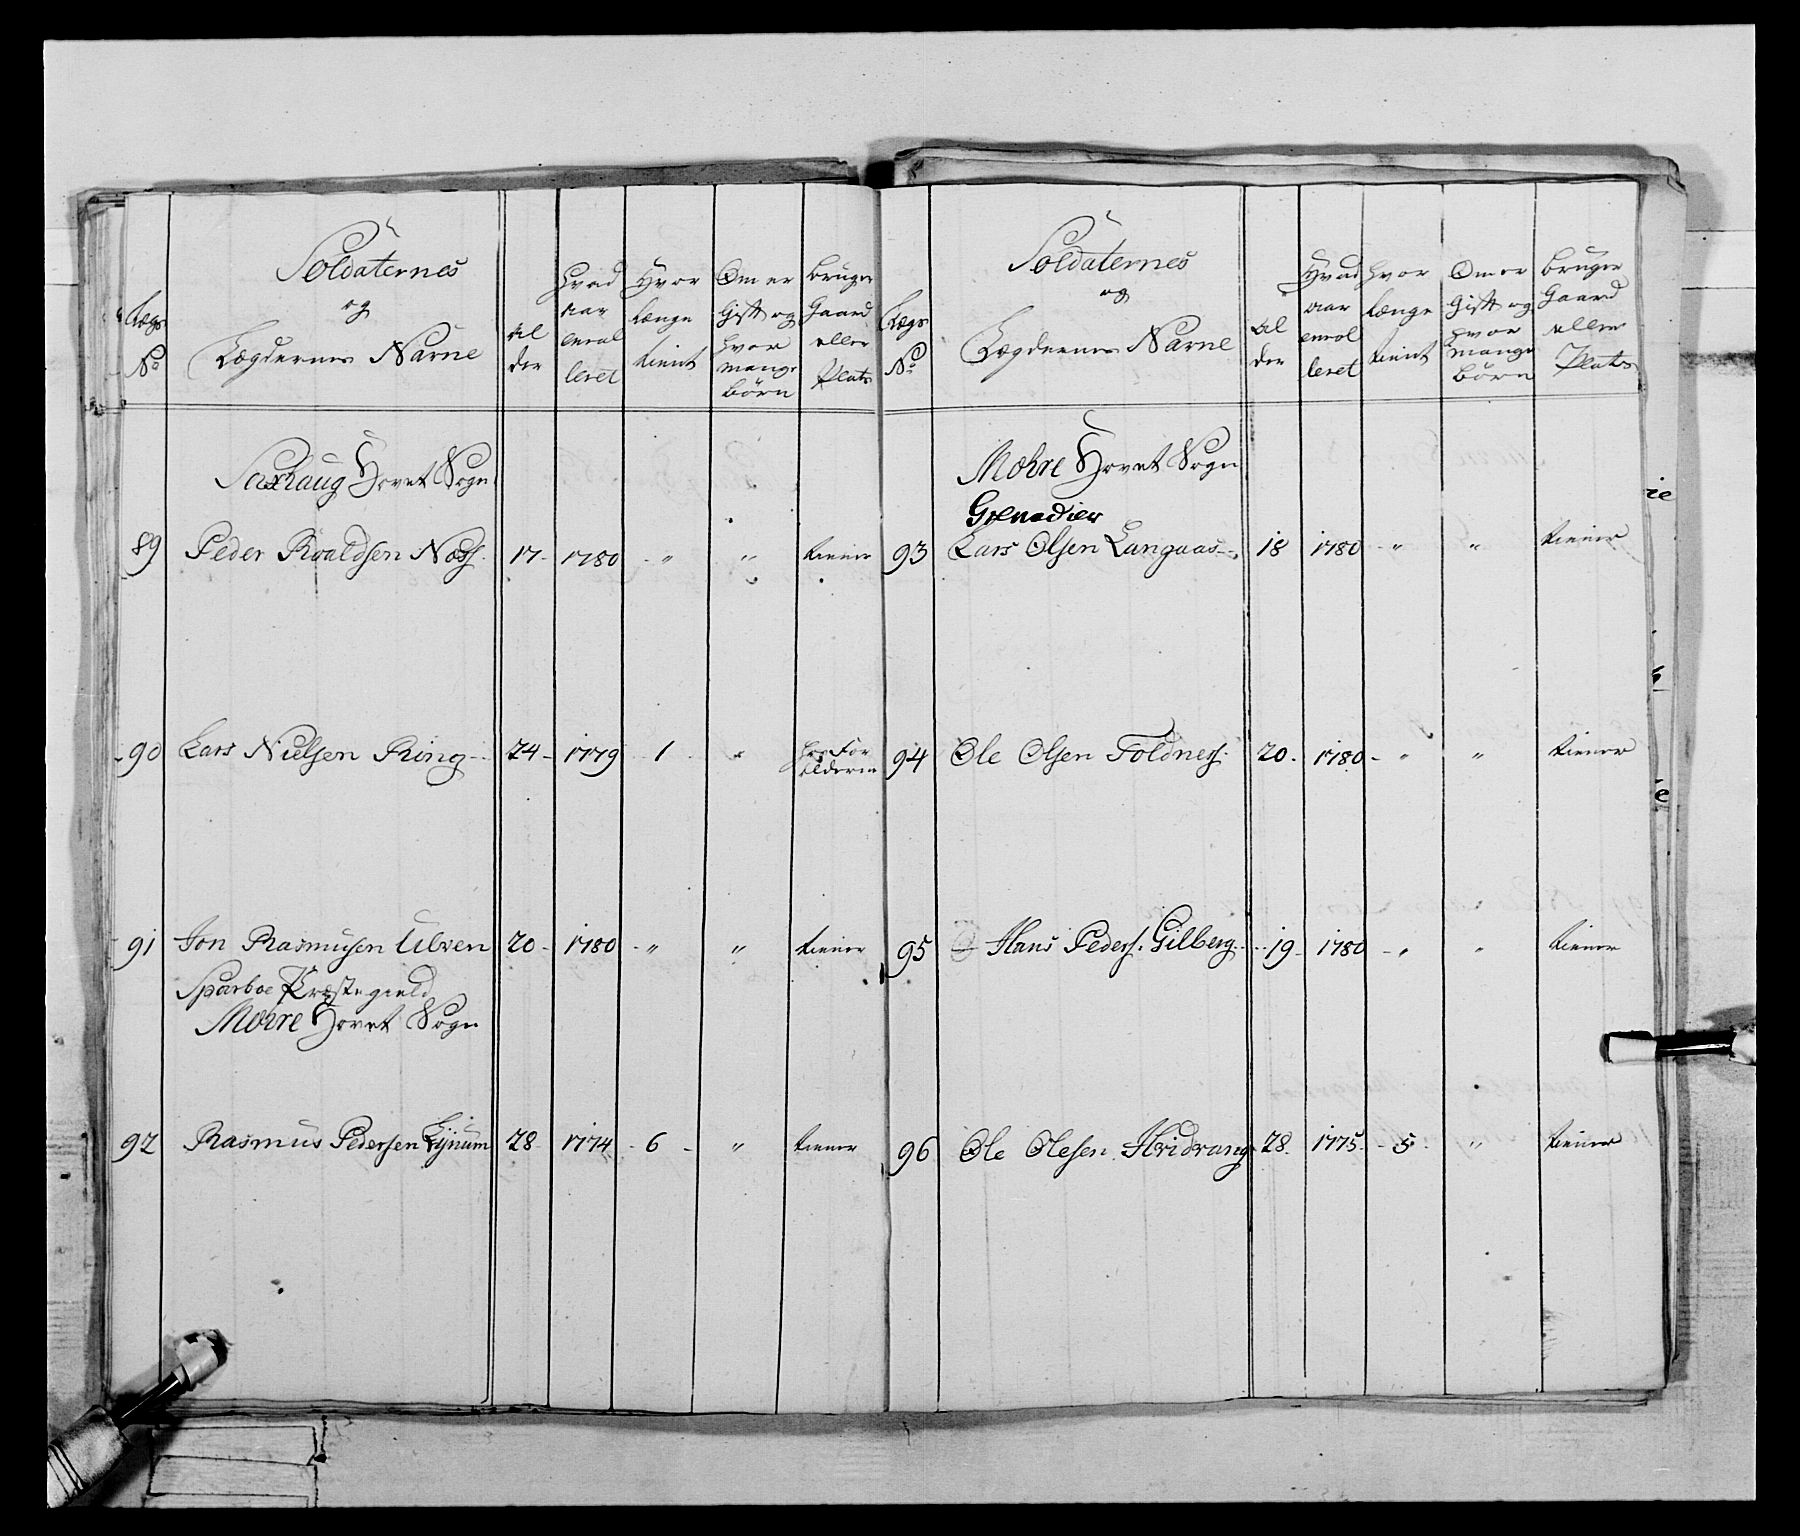 Lægs No | Soldaternes og Lægdernes Navne | Alder | Hvad aar enrolleret | Hvor længe tient | Om er Gift og hvor mange börn | bruger Gaard eller Plads
Saxhaug Hovet Sogn
89 Peder Roaldsen Næss. 17- 1780 - " " tiener
90 Lars Nielsen Ring - 24- 1779 1 " hos Forældrene
91 Jon Rasmusen Ulven 20- 1780 - " " tiener
Sparboe Præstegield
Mære Hovet Sogn
92 Rasmus Pedersen Lÿnum 28 1774 - 6 - " tiener
Lægs No | Soldaternes og Lægdernes Navne | Alder | Hvad aar enrolleret | hvor længe tient | Om er Gift og hvor mange börn | bruger Gaard eller Plads
Mæhre Hovet Sogn
Grenadier
93 Lars Olsen Langaas - 18 1780 - " " tiener
94 Ole Olsen Foldness. 20. 1780 - " " tiener
95 Hans Peders. Gilberg. 19- 1780 - " " tiener
96 Ole Olesen 28. 1775. - 5. " tiener